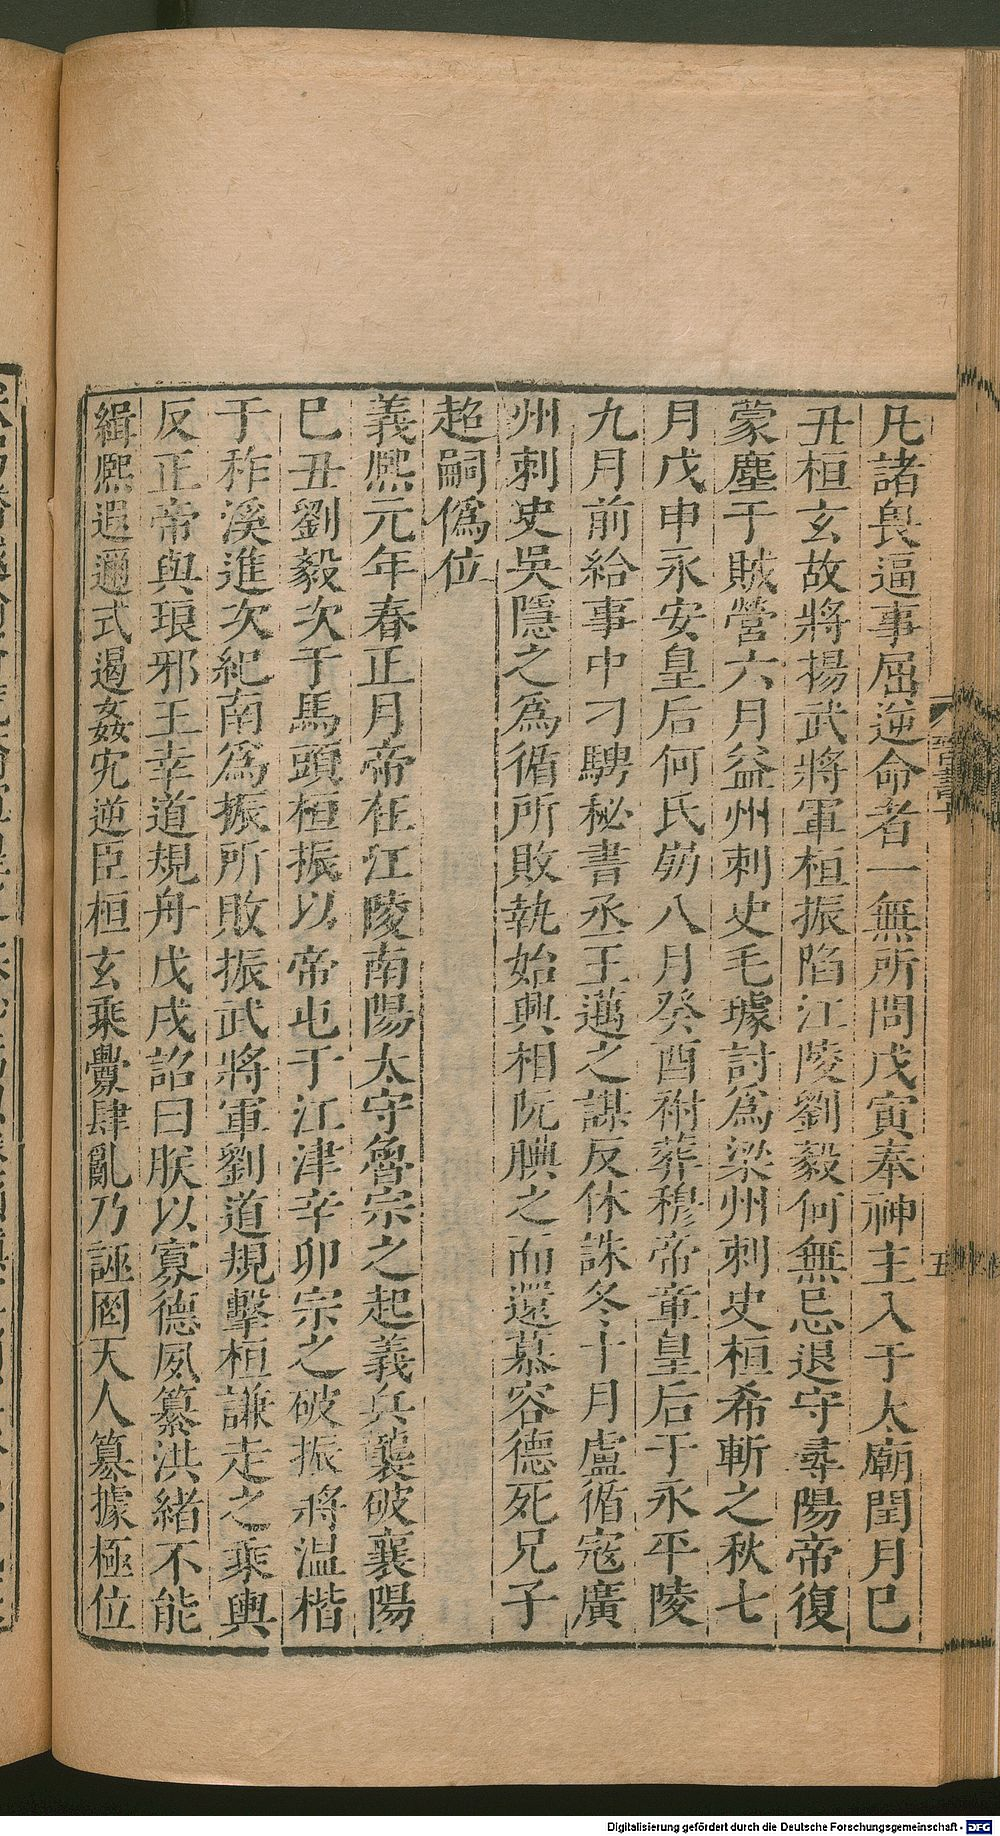 凡諸畏逼事屈逆命者一無所問戊寅奉神主入于太廟閏月巳
丑桓玄故將揚武將軍桓振陷江陵劉毅何無忌退守尋陽帝復
蒙塵于賊營六月益州刺史毛璩討僞梁州刺史桓希斬之秋七
月戊申永安皇后何氏崩八月癸酉祔葬穆帝章皇后于永平陵
九月前給事中刁騁秘書丞王邁之謀反伏誅冬十月盧循宼廣
州刺史吳隱之爲循所敗執始興相阮腆之而還慕容德死兄子
超嗣僞位
義熙元年春正月帝在江陵南陽太守魯宗之起義兵襲破襄陽
巳丑劉毅次于馬頭桓振以帝屯于江津辛卯宗之破振將溫楷
于柞溪進次紀南爲振所敗振武將軍劉道規擊桓謙走之乘輿
反正帝與琅邪王幸道規舟戊戌詔曰朕以寡德夙纂洪緒不能
緝熙遐邇式遏姦宄逆臣桓玄乘釁肆亂乃誣罔天人篡據極位
五
Digitalisierung gefördert durch die Deutsche Forschungsgemeinschaft - DFG